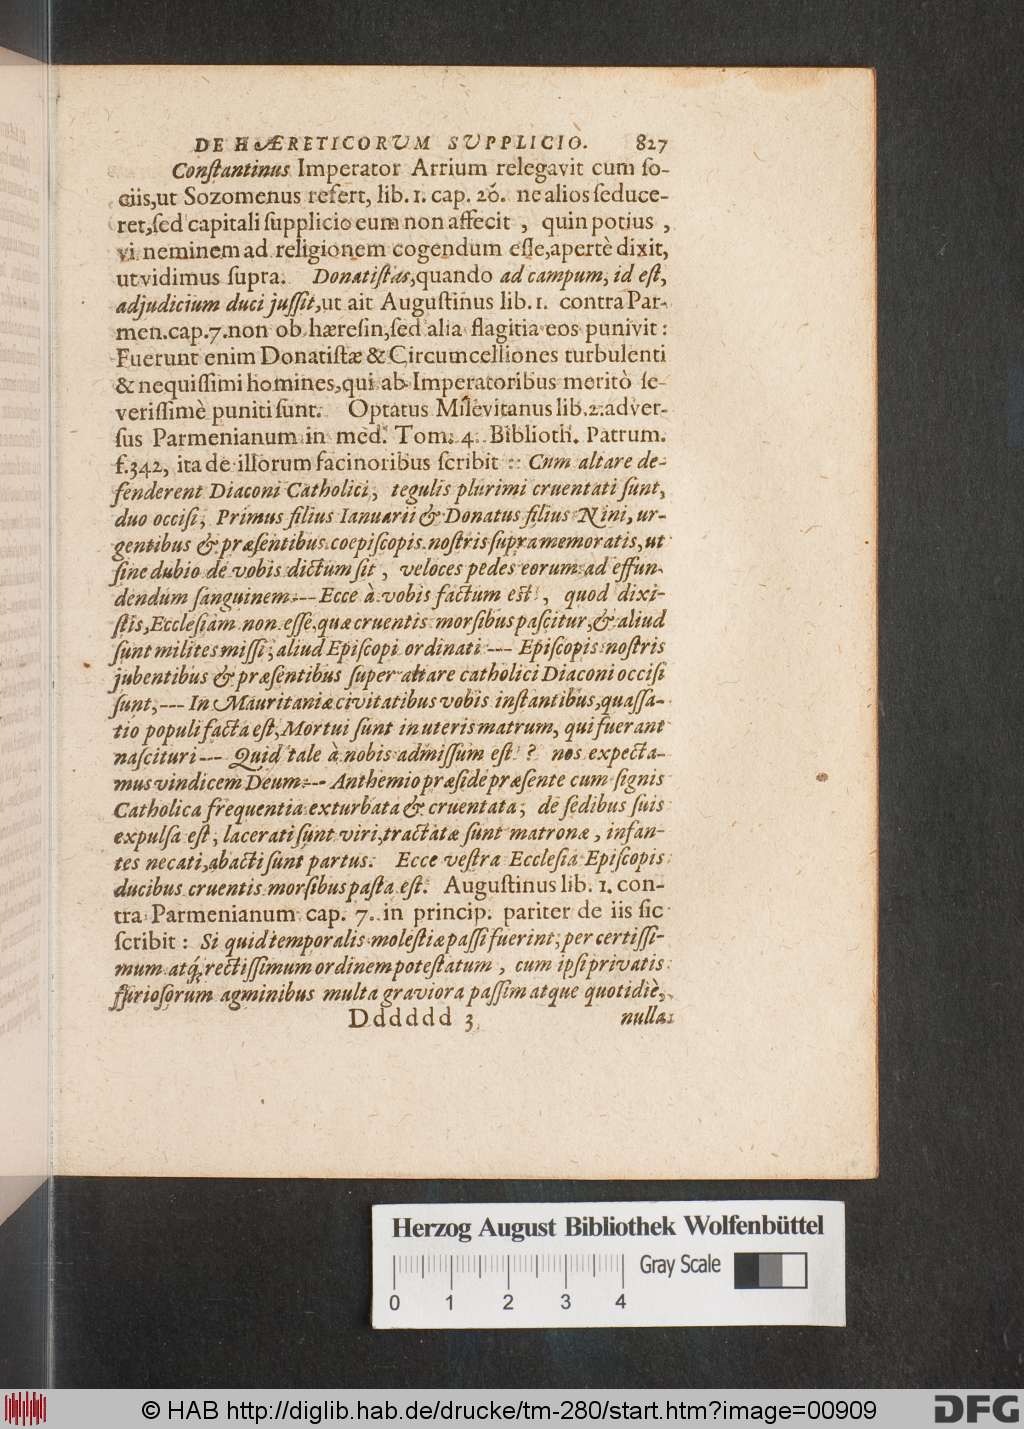 DE HÆRETICORUM SUPPLICIO. 827
Conſtantinus Imperator Arrium relegavit cum ſo-
ciis, ut Sozomenus refert, lib. 1. cap. 20. ne alios ſeduce-
ret, ſed capitali ſupplicio eum non affecit, quin potius,
vi neminem ad religionem cogendum eſſe, apertè dixit,
ut vidimus ſupra. Donatiſtas, quando ad campum, id eſt,
ad judicium duci juſſit, ut ait Auguſtinus lib. 1. contra Par-
men. cap. 7. non ob hæreſin, ſed alia flagitia eos punivit:
Fuerunt enim Donatiſtæ & Circumcelliones turbulenti
& nequiſſimi homines, qui ab Imperatoribus meritò ſe-
veriſſimè puniti ſunt. Optatus Milevitanus lib. 2. adver-
ſus Parmenianum in med. Tom. 4. Biblioth. Patrum.
f. 342, ita de illorum facinoribus ſcribit: Cum altare de-
fenderent Diaconi Catholici, tegulis plurimi cruentati ſunt,
duo occiſi, Primus filius Ianuarii & Donatus filius Nini, ur-
gentibus & præſentibus coepiſcopis noſtris ſupra memoratis, ut
ſine dubio de vobis dictum ſit, veloces pedes eorum ad effun-
dendum ſanguinem. --- Ecce à vobis factum eſt, quod dixi-
ſtis, Eccleſiam non eſſe, quæ cruentis morſibus paſcitur, & aliud
ſunt milites miſſi, aliud Epiſcopi ordinati --- Epiſcopis noſtris
jubentibus & præſentibus ſuper altare catholici Diaconi occiſi
ſunt, --- In Mauritaniæ civitatibus vobis inſtantibus, quaſſa-
tio populi facta eſt, Mortui ſunt in uteris matrum, qui fuerant
naſcituri --- Quid tale à nobis admiſſum eſt? nos expecta-
mus vindicem Deum. --- Anthemio præſide præſente cum ſignis
Catholica frequentia exturbata & cruentata, de ſedibus ſuis
expulſa eſt, lacerati ſunt viri, tractatæ ſunt matronæ, infan-
tes necati, abacti ſunt partus. Ecce veſtra Eccleſia Epiſcopis
ducibus cruentis morſibus paſta eſt. Auguſtinus lib. 1. con-
tra Parmenianum cap. 7. in princip. pariter de iis ſic
ſcribit: Si quid temporalis moleſtiæ paſſi fuerint, per certiſſi-
mum atq; rectiſſimum ordinem poteſtatum, cum ipſi privatis
furioſorum agminibus multa graviora paſſim atque quotidiè,
Dddddd 3 nulla
Herzog August Bibliothek Wolfenbüttel
Gray Scale
0 1 2 3 4
© HAB http://diglib.hab.de/drucke/tm-280/start.htm?image=00909
DFG